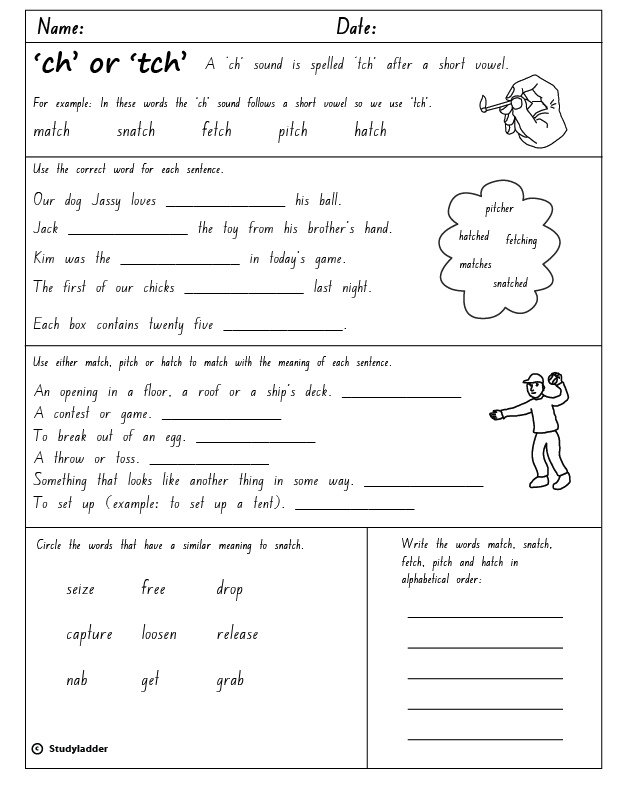 Name: Date:
'ch' or 'tch' A 'ch' sound is spelled 'tch' after a short vowel.
For example: In these words the 'ch' sound follows a short vowel so we use 'tch'.
match snatch fetch pitch hatch
Use the correct word for each sentence.
Our dog Jassy loves ______________ his ball.
Jack ______________ the toy from his brother's hand.
Kim was the ______________ in today's game.
The first of our chicks ______________ last night.
Each box contains twenty five ______________.
pitcher
hatched fetching
matches
snatched
Use either match, pitch or hatch to match with the meaning of each sentence.
An opening in a floor, a roof or a ship's deck. ______________
A contest or game. ______________
To break out of an egg. ______________
A throw or toss. ______________
Something that looks like another thing in some way. ______________
To set up (example: to set up a tent). ______________
Circle the words that have a similar meaning to snatch.
seize free drop
capture loosen release
nab get grab
Write the words match, snatch,
fetch, pitch and hatch in
alphabetical order:
© Studyladder